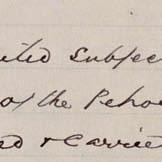 ited Subjec
of the Peho
ed & Carrie